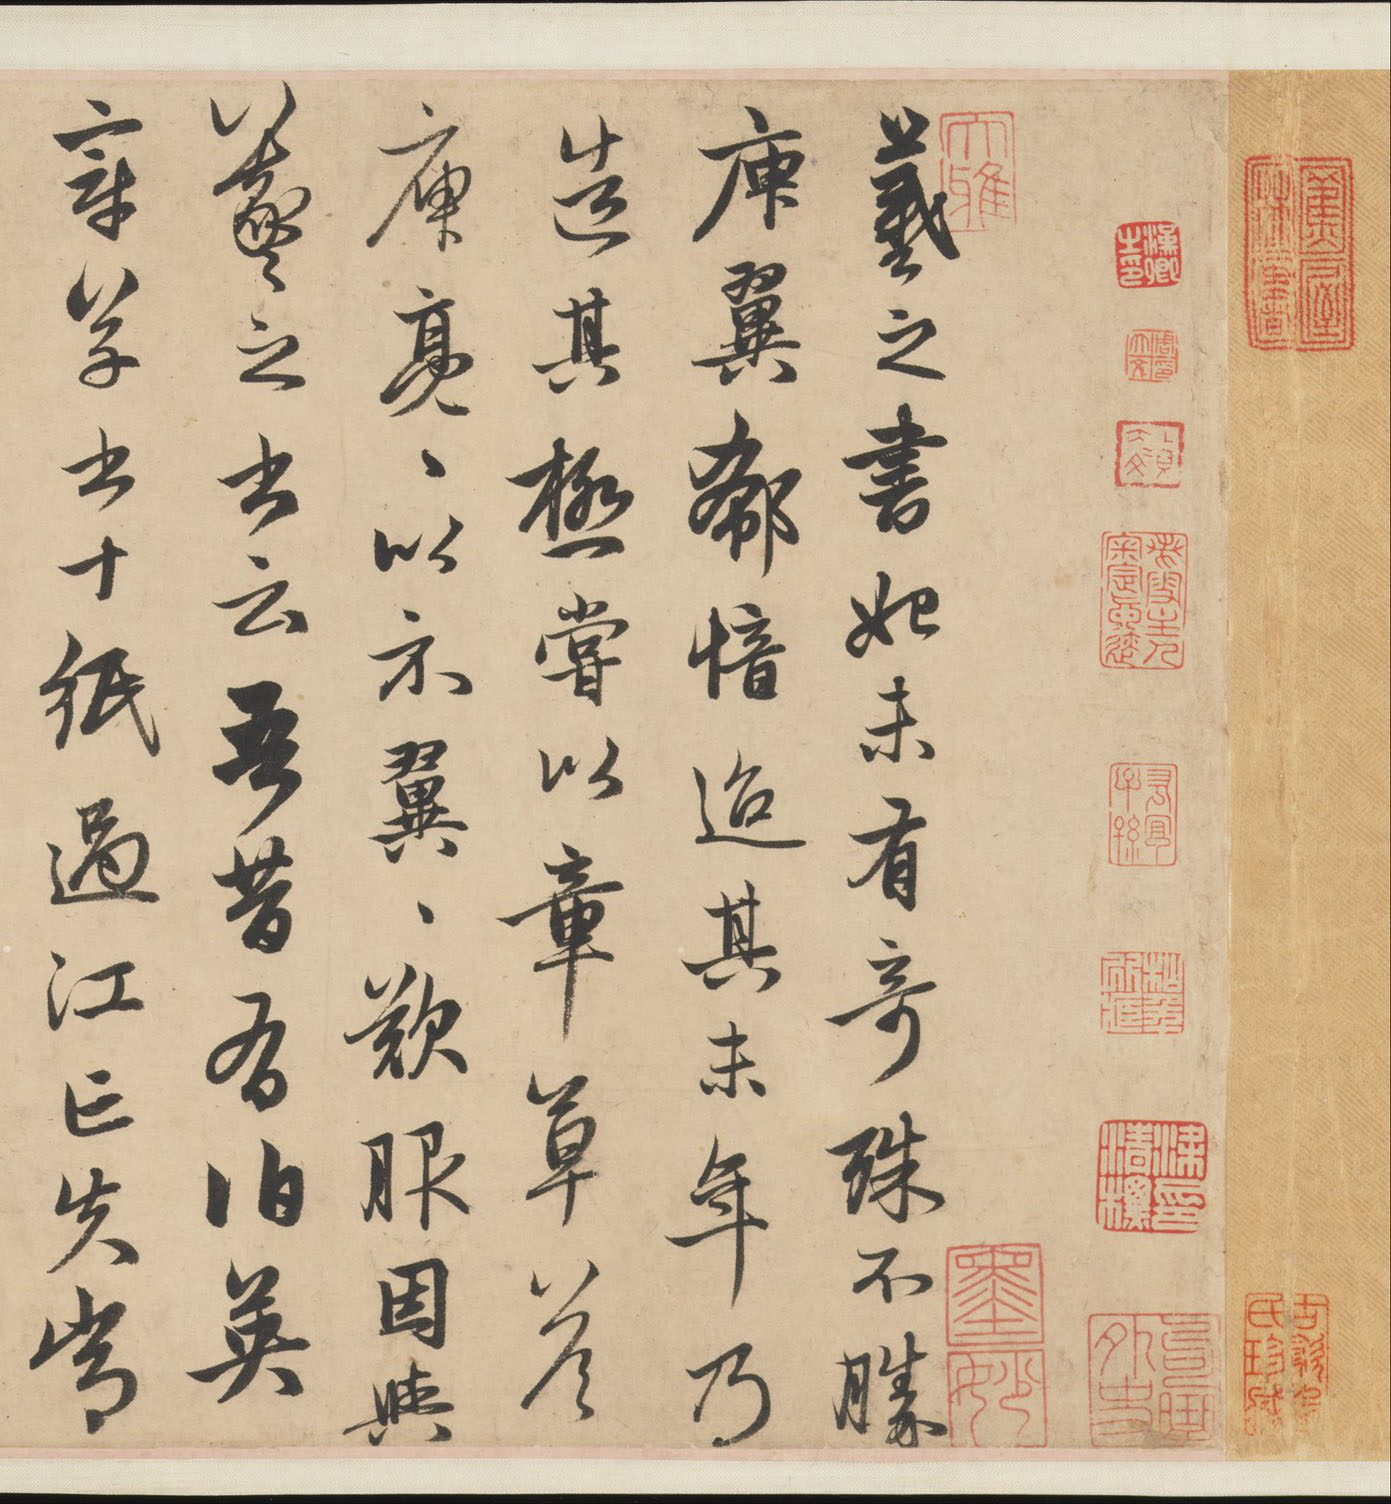 大雅
羲之書始未有奇殊不勝
庾翼郗愔迨其末年乃
造其極嘗以章草答
庾亮、以示翼、歎服因與
羲之書云吾昔有伯英
章草書十紙過江亡失常
墨妙
梁清標印